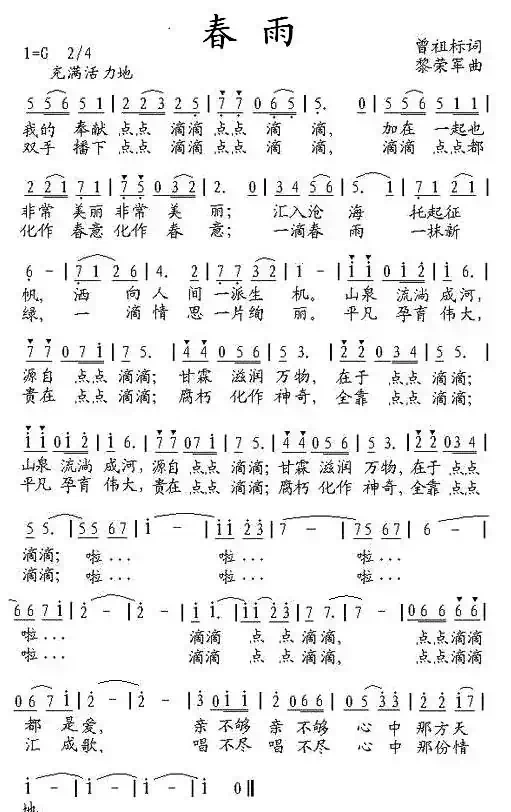 春雨
1=G 2/4
曾祖标词
充满活力地
黎荣军曲
5 5 6 5 1 | 2 2 3 2 5 | 7 7 0 6 5 | 5. 0 | 5 6 5 4 2 |
我的 奉献 点点 滴滴 点点 滴 滴, 加在 一起也
双手 播下 点点 滴滴 点点 滴 滴, 滴滴 点点都
2 2 1 7 1 | 7 5 0 3 2 | 2. 0 | 3 4 5 6 | 5. 1 | 7 1 2 1 |
非常 美丽 非常 美 丽; 汇入沧 海 托起征
化作 春意 化作 春 意; 一滴春 雨 一抹新
6 - | 7 1 2 6 | 4. 2 | 7 7 3 2 | 1 - | i i 0 i 2 |
帆, 洒 向人 间 一派生 机。 山泉 流淌 成河,
绿, 一 滴情 思 一片绚 丽。 平凡 孕育 伟大,
7 7 0 7 1 | 7 5. | 4 4 0 5 6 | 5 3. | 2 2 0 3 4 | 5 5. |
源自 点点 滴滴; 甘霖 滋润 万物, 在于 点点 滴滴;
贵在 点点 滴滴; 腐朽 化作 神奇, 全靠 点点 滴滴;
i i 0 i 2 | i 6. | 7 7 0 7 i | 7 5. | 4 4 0 5 6 | 5 3. | 2 2 0 3 4 |
山泉 流淌 成河, 源自 点点 滴滴; 甘霖 滋润 万物, 在于 点点
平凡 孕育 伟大, 贵在 点点 滴滴; 腐朽 化作 神奇, 全靠 点点
5 5. | 5 5 6 7 | i - | i i 2 3 | 7 - | 7 5 6 7 | 6 - |
滴滴; 啦... 啦... 啦...
滴滴; 啦... 啦... 啦...
6 6 7 i | 2 - | 2 - | i i. | i i 2 3 | 7 7. | 7 - | 0 6 6 6 6 |
啦... 滴滴 点 点 滴滴, 点点 滴滴
啦... 滴滴 点 点 滴滴, 点点 滴滴
0 6 7 i | 2 - | 2 - | 3 0 i | 6 0 6 | 5 0 6 | 0 5 3 | 2 2 i 7 |
都 是爱, 亲 不够 亲 不够 心 中 那方天
汇 成歌, 唱 不尽 唱 不尽 心 中 那份情
i - | i - | i - | i 0 ‖
地